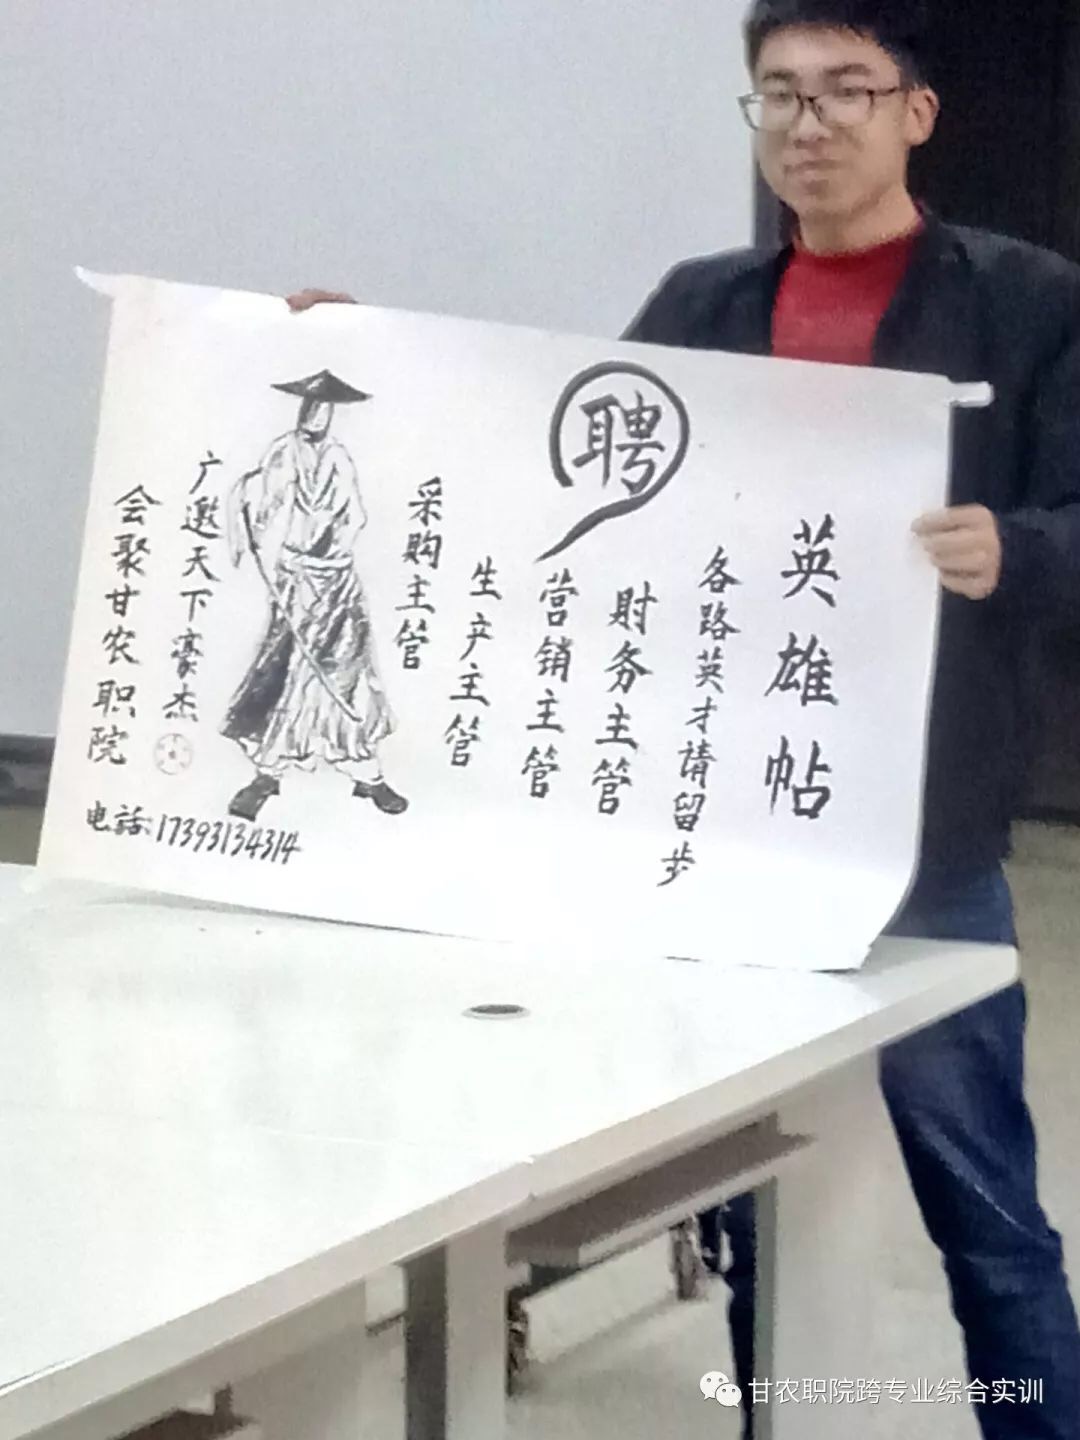 英雄帖
各路英才请留步
聘
财务主管
营销主管
生产主管
采购主管
广邀天下豪杰
会聚甘农职院
电话:17393134314
甘农职院跨专业综合实训